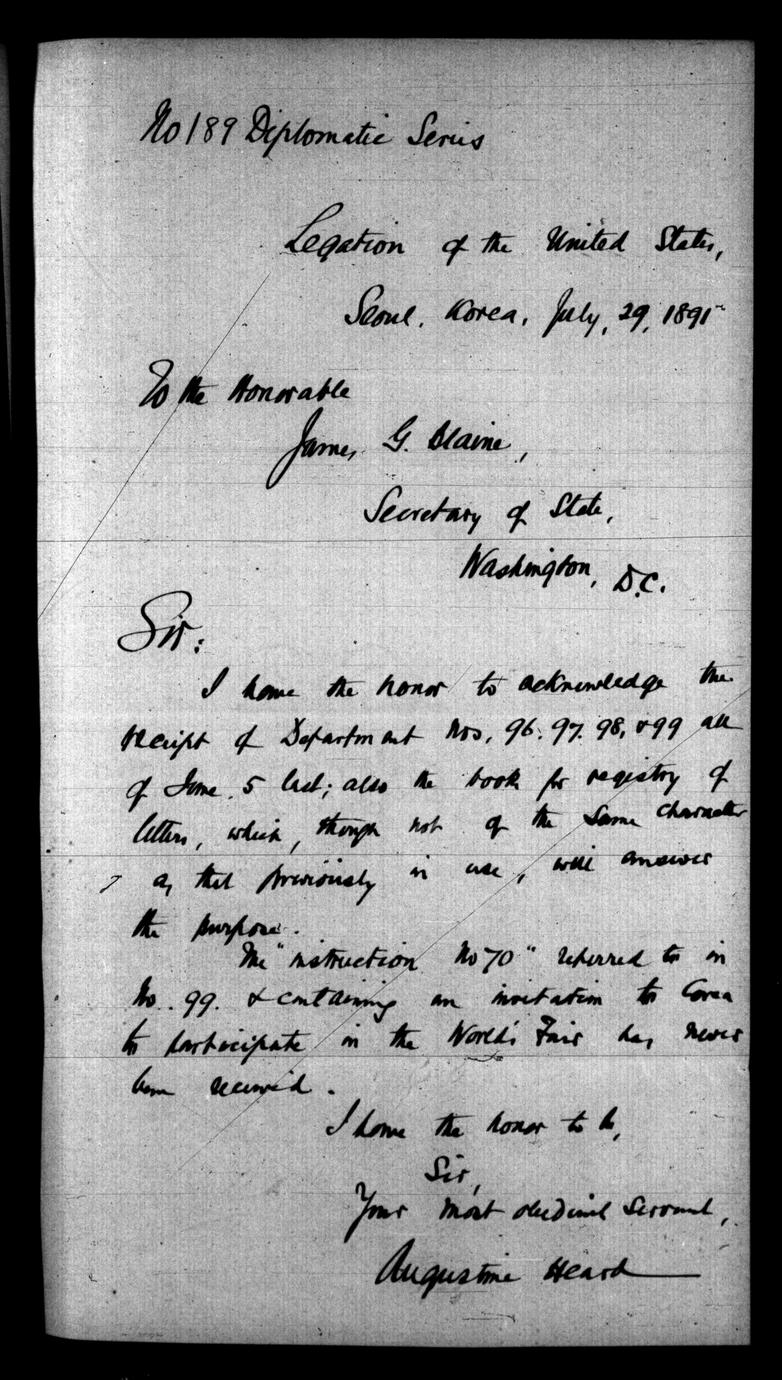 No 189 Diplomatic Series
Legation of the United States,
Seoul, Korea, July, 29, 1891
To the Honorable
James G. Blaine,
Secretary of State,
Washington, D.C.
Sir:
I have the honor to acknowledge the
receipt of Department Nos. 96. 97. 98, & 99 all
of June 5 last; also the book for registry of
letters, which, though not of the same character
as that previously in use, will answer
the purpose.
The "instruction No 70" referred to in
No. 99. & containing an invitation to Corea
to participate in the World's Fair has never
been received.
I have the honor to be,
Sir,
Your most obedient servant,
Augustine Heard